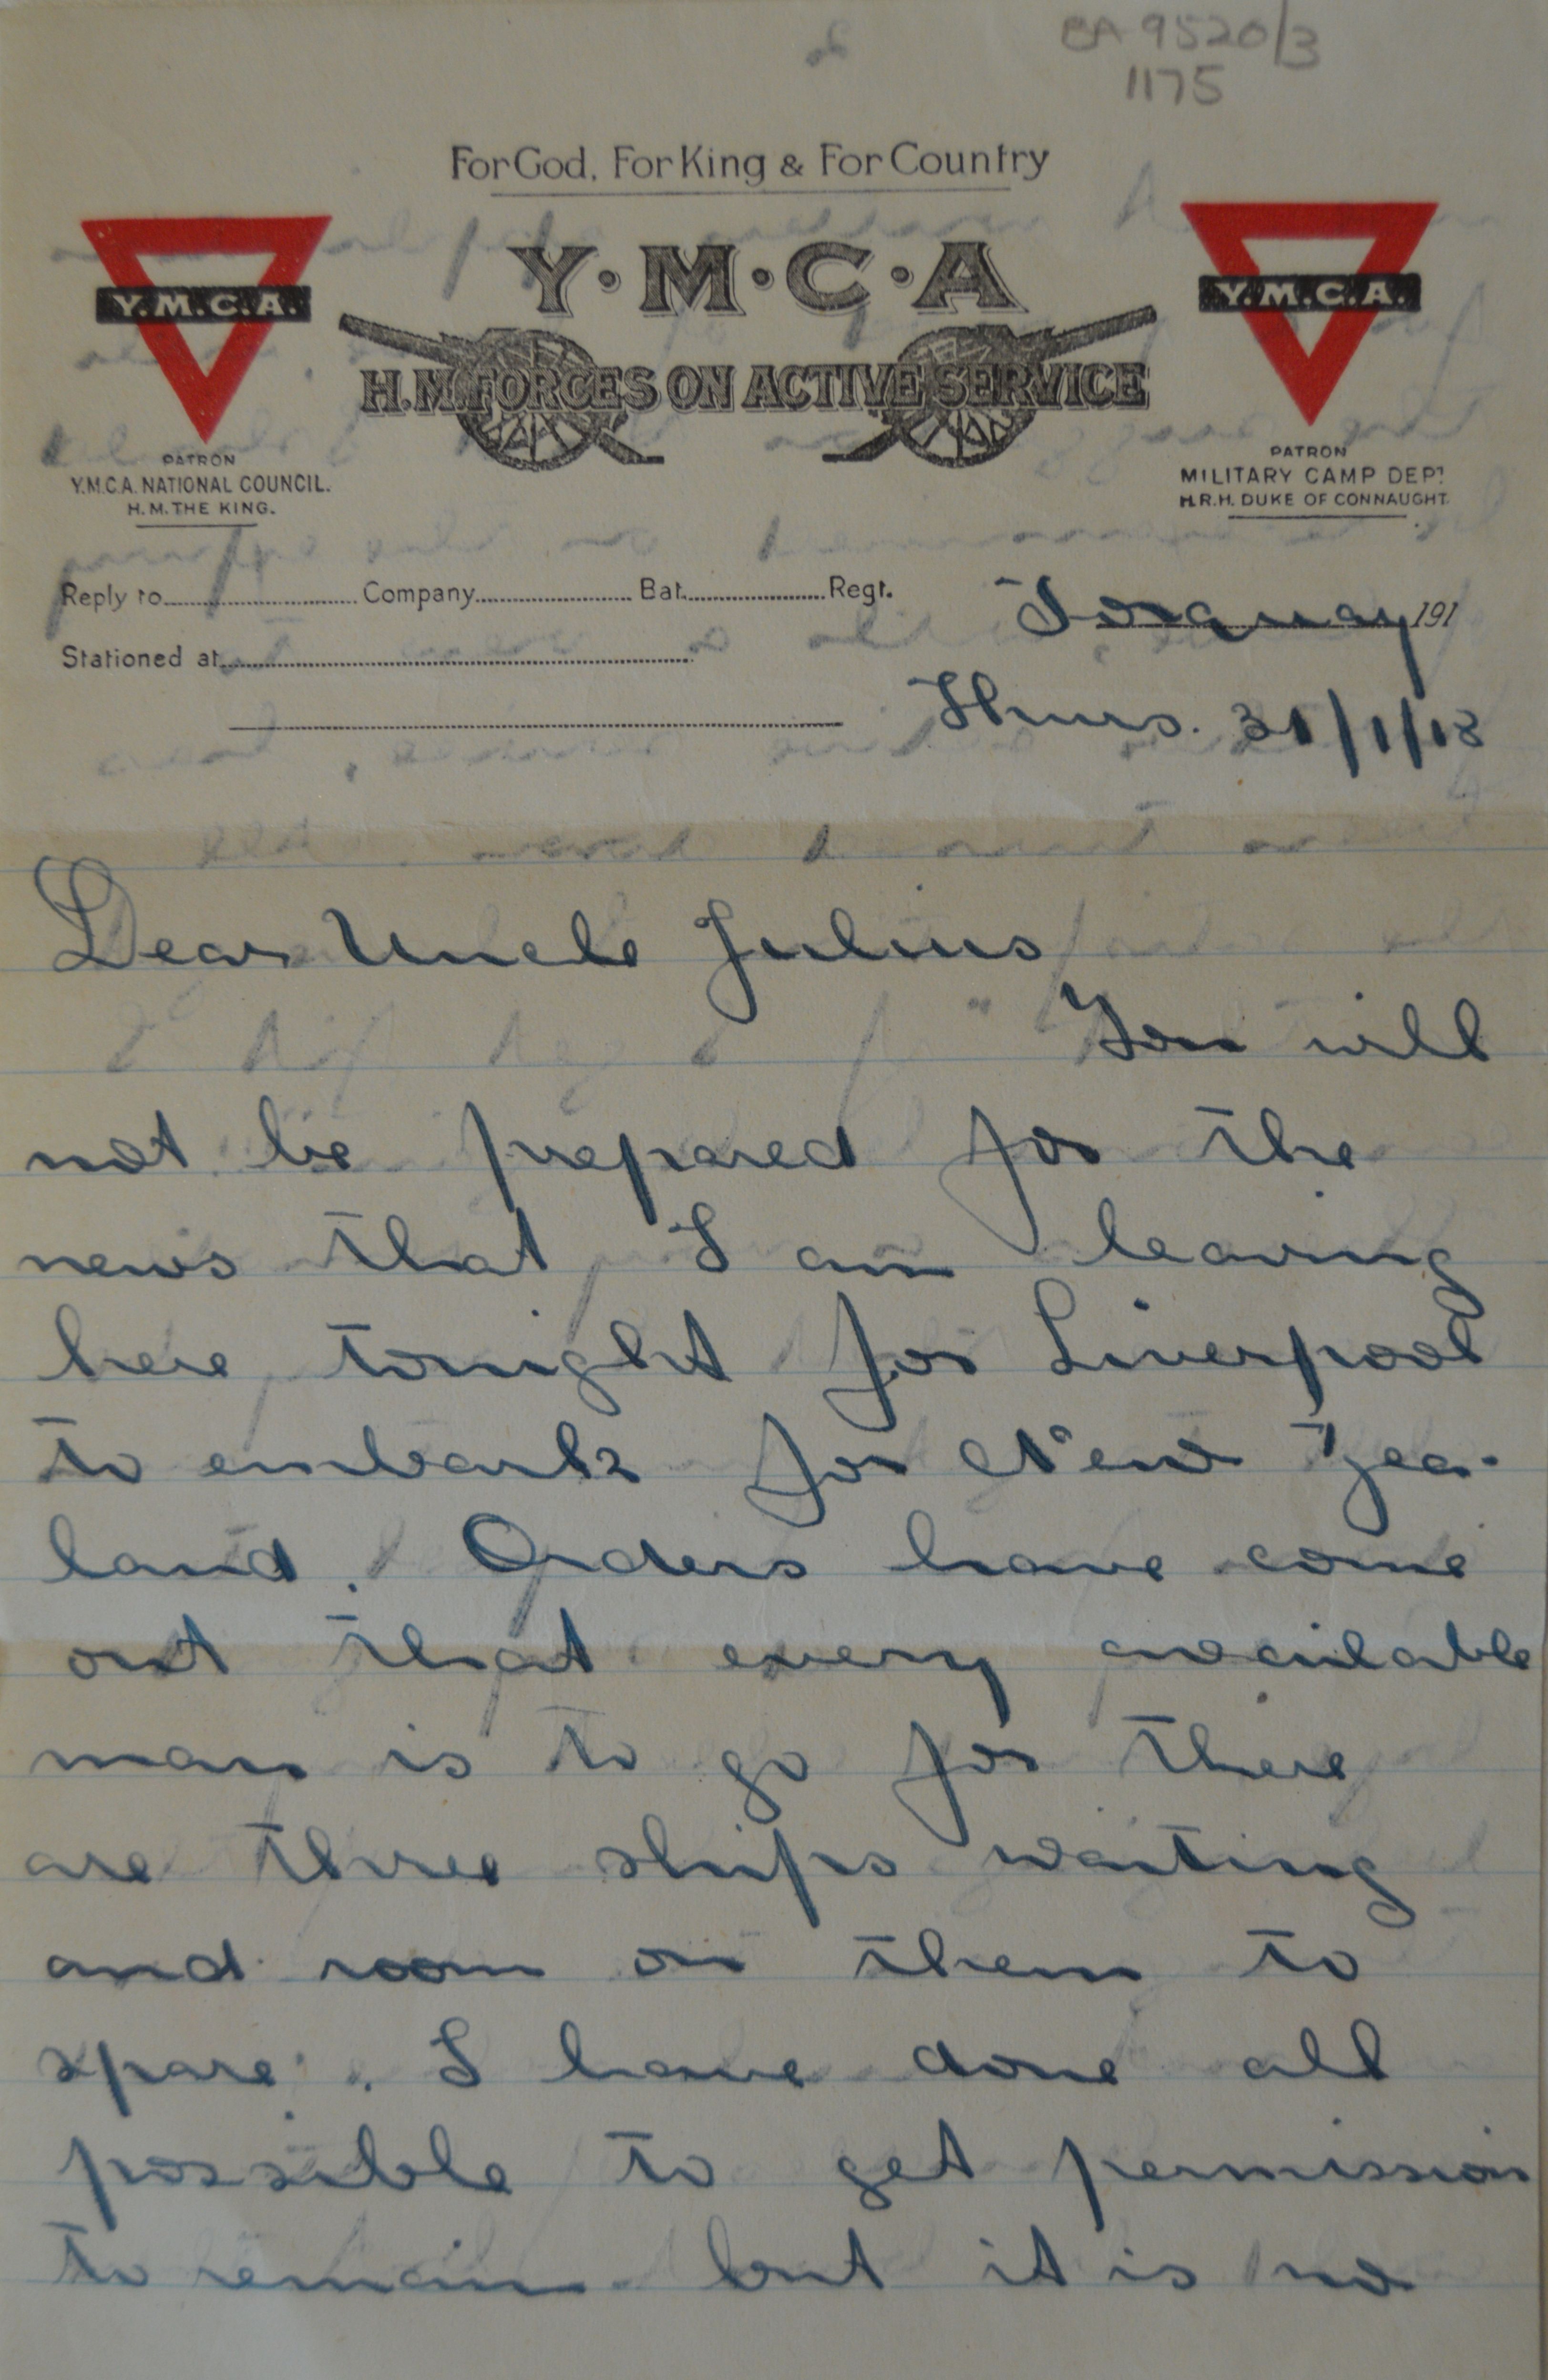 BA 9520/3
1175
For God, For King & For Country
Y·M·C·A
Y.M.C.A.
Y.M.C.A.
H.M. FORCES ON ACTIVE SERVICE
PATRON
Y.M.C.A. NATIONAL COUNCIL.
H.M. THE KING.
PATRON
MILITARY CAMP DEPT.
H.R.H. DUKE OF CONNAUGHT.
Reply to Company Bat. Regt. Torquay 191
Stationed at
Thurs. 31/1/18
Dear Uncle Julius
You will
not be prepared for the
news that I am leaving
here tonight for Liverpool
to embark for New Zea-
land. Orders have come
out that every available
man is to go for there
are three ships waiting
and room on them to
spare. I have done all
possible to get permission
to remain but it is no